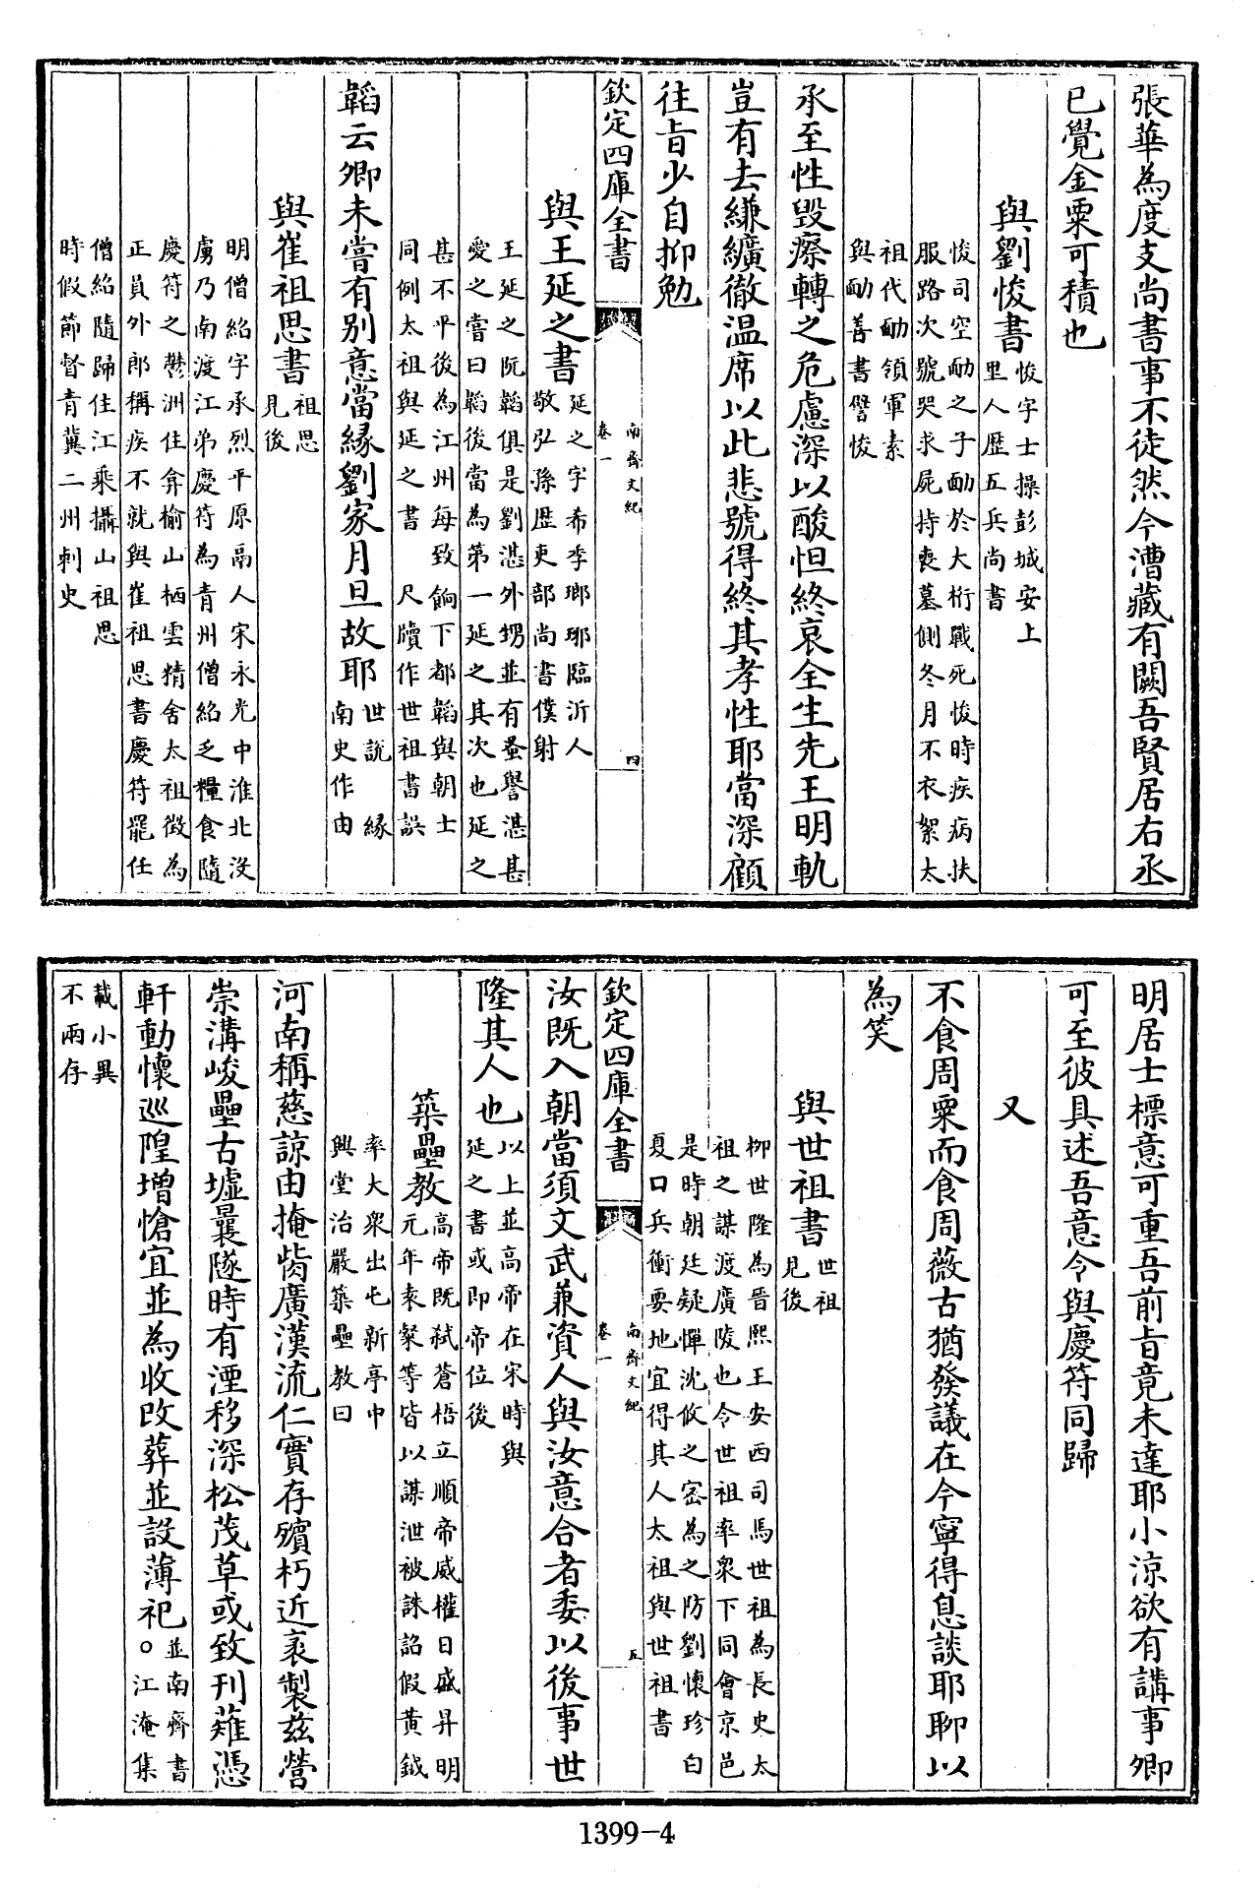 張華為度支尚書事不徒然今漕藏有闕吾賢居右丞
已覺金粟可積也
與劉悛書
悛字士操彭城安上
里人歴五兵尚書
悛司空勔之子勔於大桁戰死悛時疾病扶
服路次號哭求屍持喪墓側冬月不衣絮太
祖代勔領軍素
與勔善書譬悛
承至性毁瘵轉之危慮深以酸怛終哀全生先王明軌
豈有去縑纊徹温席以此悲號得終其孝性耶當深顧
往旨少自抑勉
欽定四庫全書
南齊文紀
卷一
四
與王延之書
延之字希季瑯琊臨沂人
敬弘孫歴吏部尚書僕射
王延之阮韜俱是劉湛外甥並有蚤譽湛甚
愛之嘗曰韜後當為第一延之其次也延之
甚不平後為江州每致餉下都韜與朝士
同例太祖與延之書 尺牘作世祖書誤
韜云卿未嘗有别意當縁劉家月旦故耶
世説 縁
南史作由
與崔祖思書
祖思
見後
明僧紹字承烈平原鬲人宋永光中淮北沒
虜乃南渡江弟慶符為青州僧紹乏糧食隨
慶符之鬱洲住弇榆山栖雲精舍太祖徴為
正員外郎稱疾不就與崔祖思書慶符罷任
僧紹隨歸住江乘攝山祖思
時假節督青冀二州刺史
明居士標意可重吾前旨竟未達耶小涼欲有講事卿
可至彼具述吾意令與慶符同歸
又
不食周粟而食周薇古猶發議在今寧得息談耶聊以
為笑
與世祖書
世祖
見後
栁世隆為晉熙王安西司馬世祖為長史太
祖之謀渡廣陵也令世祖率衆下同會京邑
是時朝廷疑憚沈攸之宻為之防劉懷珍白
夏口兵衝要地宜得其人太祖與世祖書
欽定四庫全書
南齊文紀
卷一
五
汝既入朝當須文武兼資人與汝意合者委以後事世
隆其人也
以上並高帝在宋時與
延之書或即帝位後
築壘教
高帝既弑蒼梧立順帝威權日盛昇明
元年袁粲等皆以謀泄被誅詔假黃鉞
率大衆出屯新亭中
興堂治嚴築壘教曰
河南稱慈諒由掩胔廣漢流仁實存殯朽近袤製兹營
崇溝峻壘古墟曩隧時有湮移深松茂草或致刋薙憑
軒動懷巡隍增愴宜並為收改葬並設薄祀
並南齊書
○江淹集
載小異
不兩存
1399-4